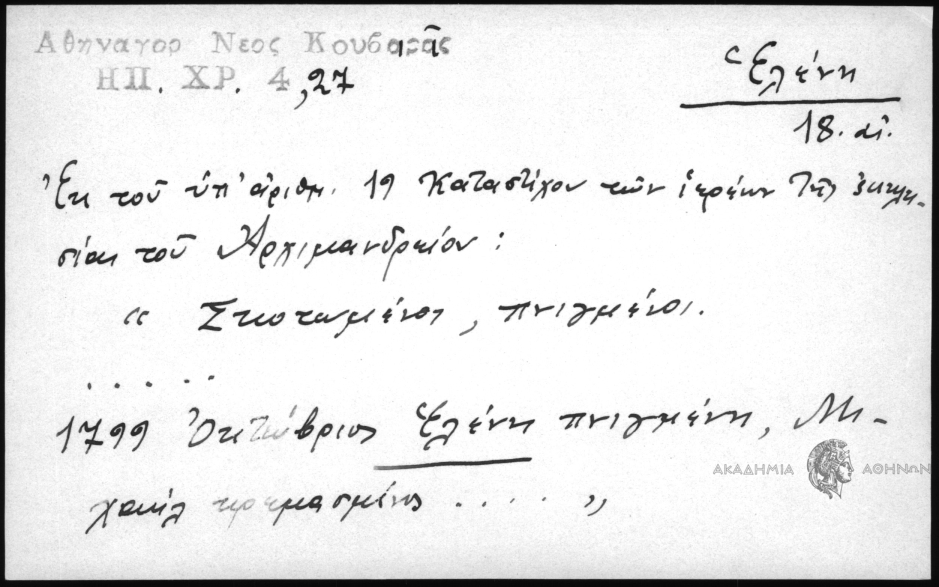 Αθηναγορ Νεος Κουβαρας
ΗΠ. ΧΡ. 4,27
Ἑλένη
18. αἰ.
Ἐκ τοῦ ὑπ' ἀριθμ. 19 Καταστίχου τῶν ἱερέων τῆς ἐκκλη-
σίας τοῦ Ἀρχιμανδρείου:
“ Σκοτωμένοι, πνιγμένοι.
. . . . . .
1799 Ὀκτώβριος Ἑλένη πνιγμένη, Μι-
χαήλ κρεμασμένος . . . . ”
ΑΚΑΔΗΜΙΑ ΑΘΗΝΩΝ